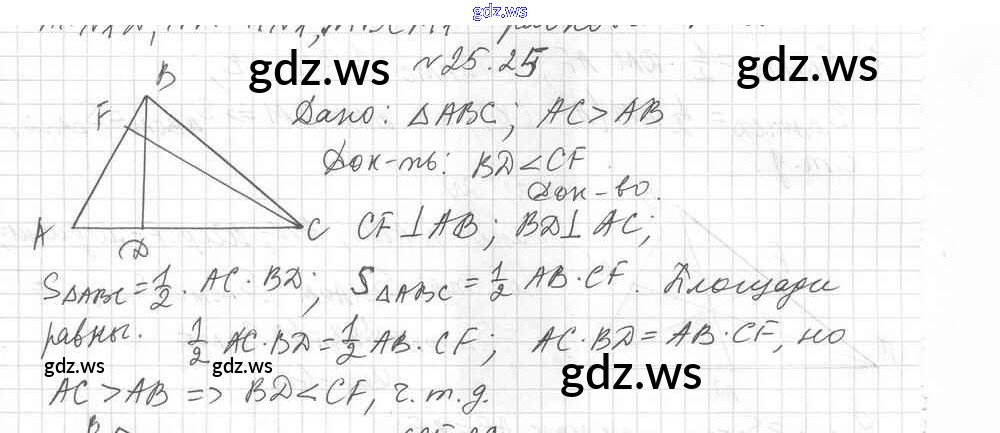 gdz.ws
gdz.ws gdz.ws
№25.25
B
F
Дано: △ABC; AC>AB
Док-ть: BD<CF.
Док-во.
A D C CF⊥AB; BD⊥AC;
S△ABC=1/2·AC·BD; S△ABC=1/2 AB·CF. Площади
равны. 1/2 AC·BD=1/2 AB·CF; AC·BD=AB·CF, но
gdz.ws gdz.ws gdz.ws
AC>AB => BD<CF, ч.т.д.